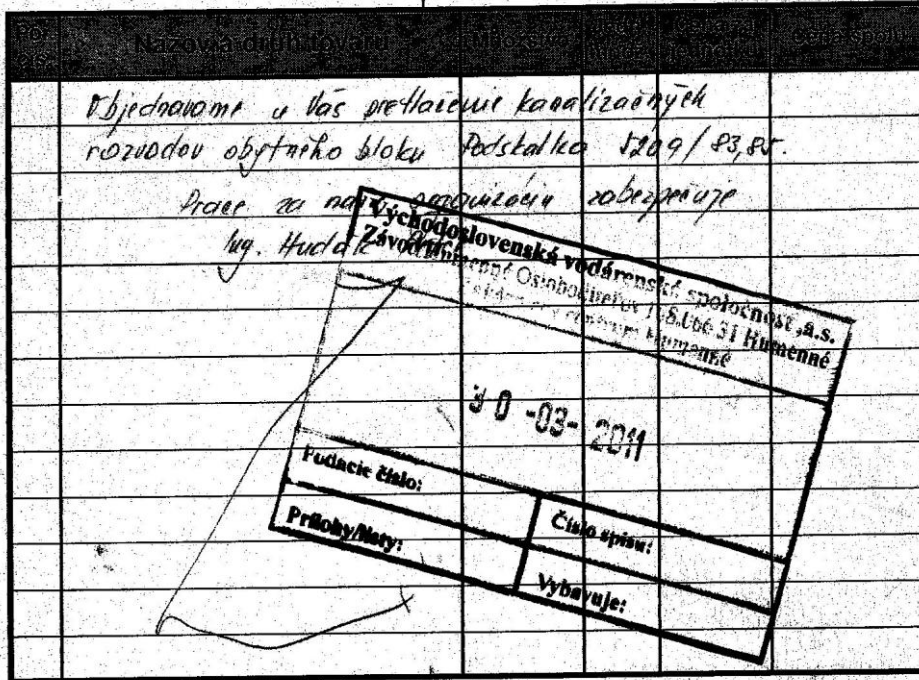 Názov a druh tovaru Množstvo Cena spolu
Objednávame u Vás pretlačenie kanalizačných
rozvodov obytného bloku Podskalka 5209/83,85.
Práce za našu organizáciu zabezpečuje
Ing. Hudák
Východoslovenská vodárenská spoločnosť, a.s.
Závod Humenné Osloboditeľov 66 31 Humenné
centrum Humenné
30 -03- 2011
Podacie číslo:
Číslo spisu:
Prílohy/listy:
Vybavuje: